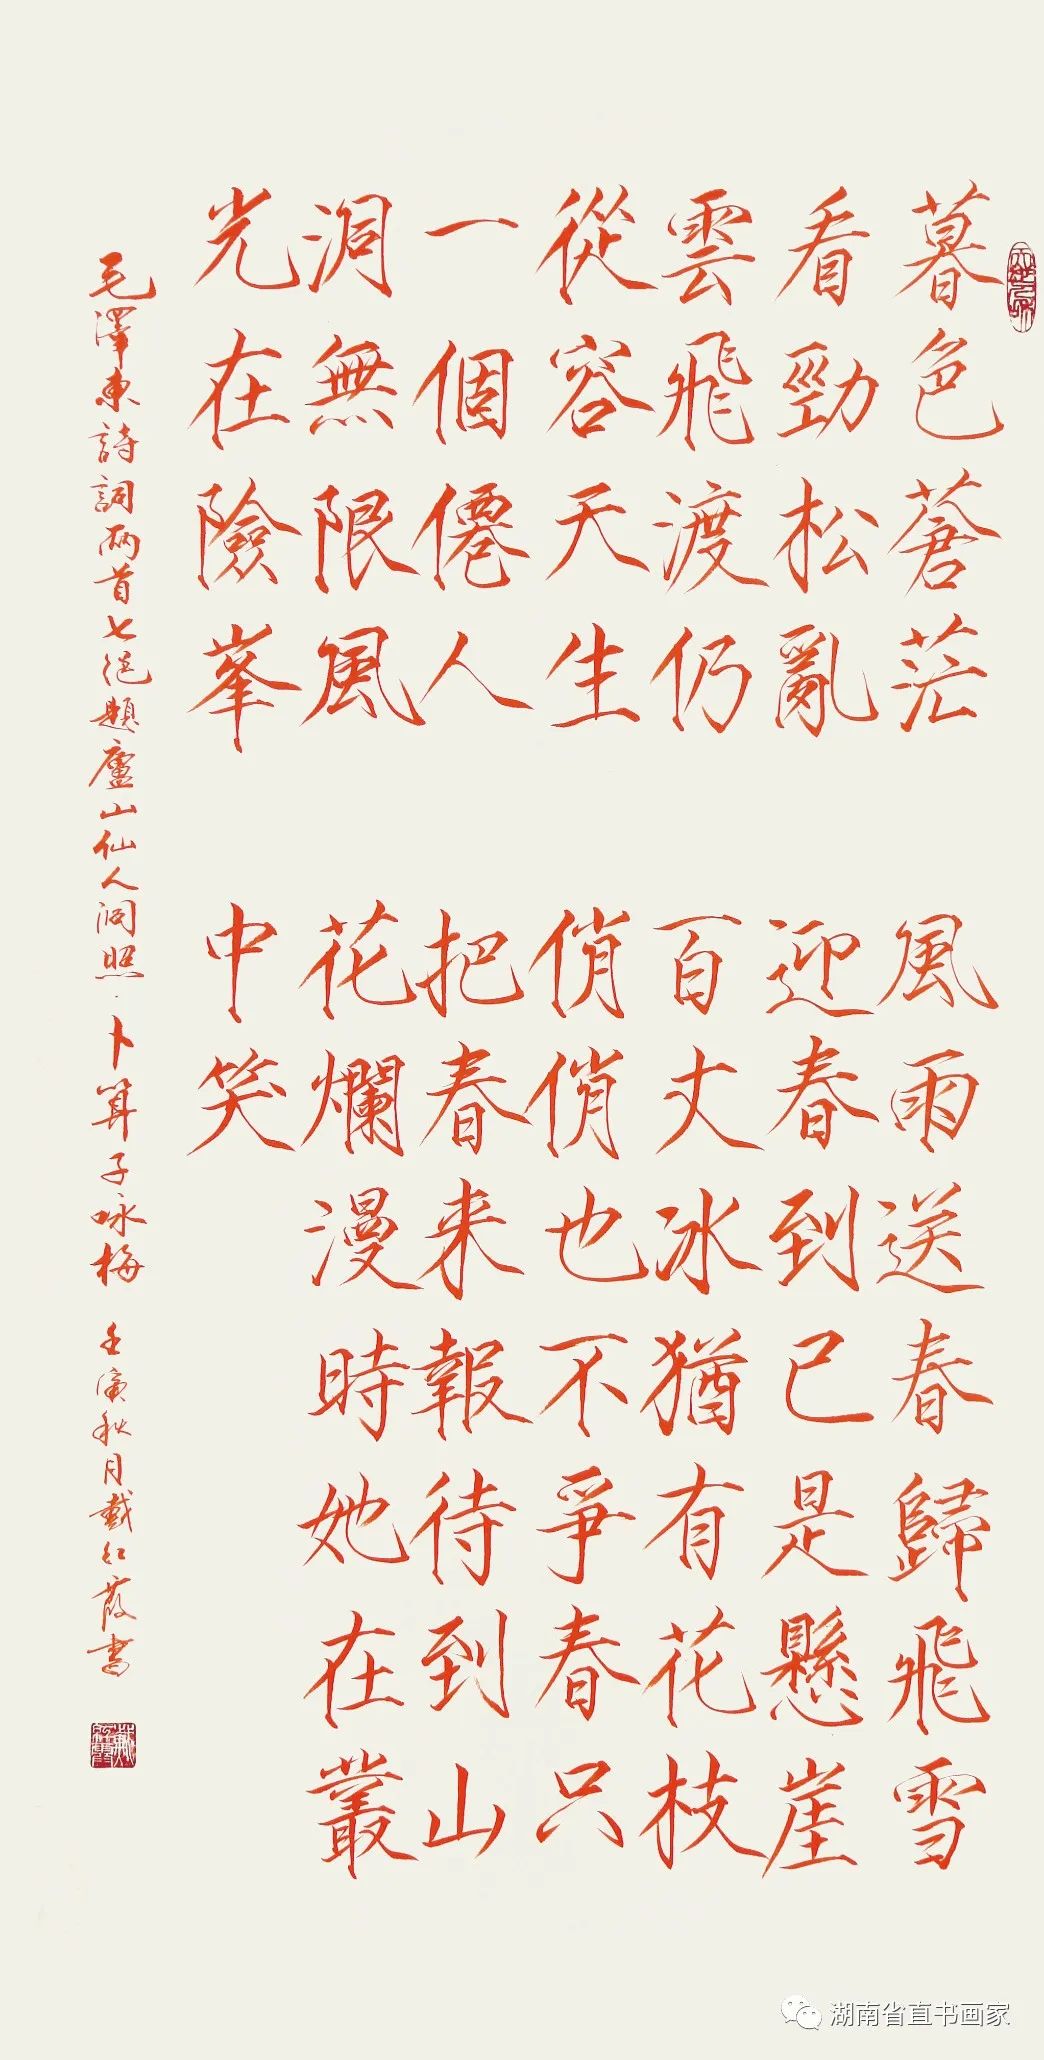 暮色蒼茫
看勁松亂
雲飛渡仍
從容天生
一個僊人
洞無限風
光在險峯
風雨送春歸飛雪
迎春到已是懸崖
百丈冰猶有花枝
俏俏也不爭春只
把春来報待到山
花爛漫時她在叢
中笑
毛澤東詩詞兩首七绝題廬山仙人洞照·卜算子咏梅 壬寅秋月戴红霞書
湖南省直书画家